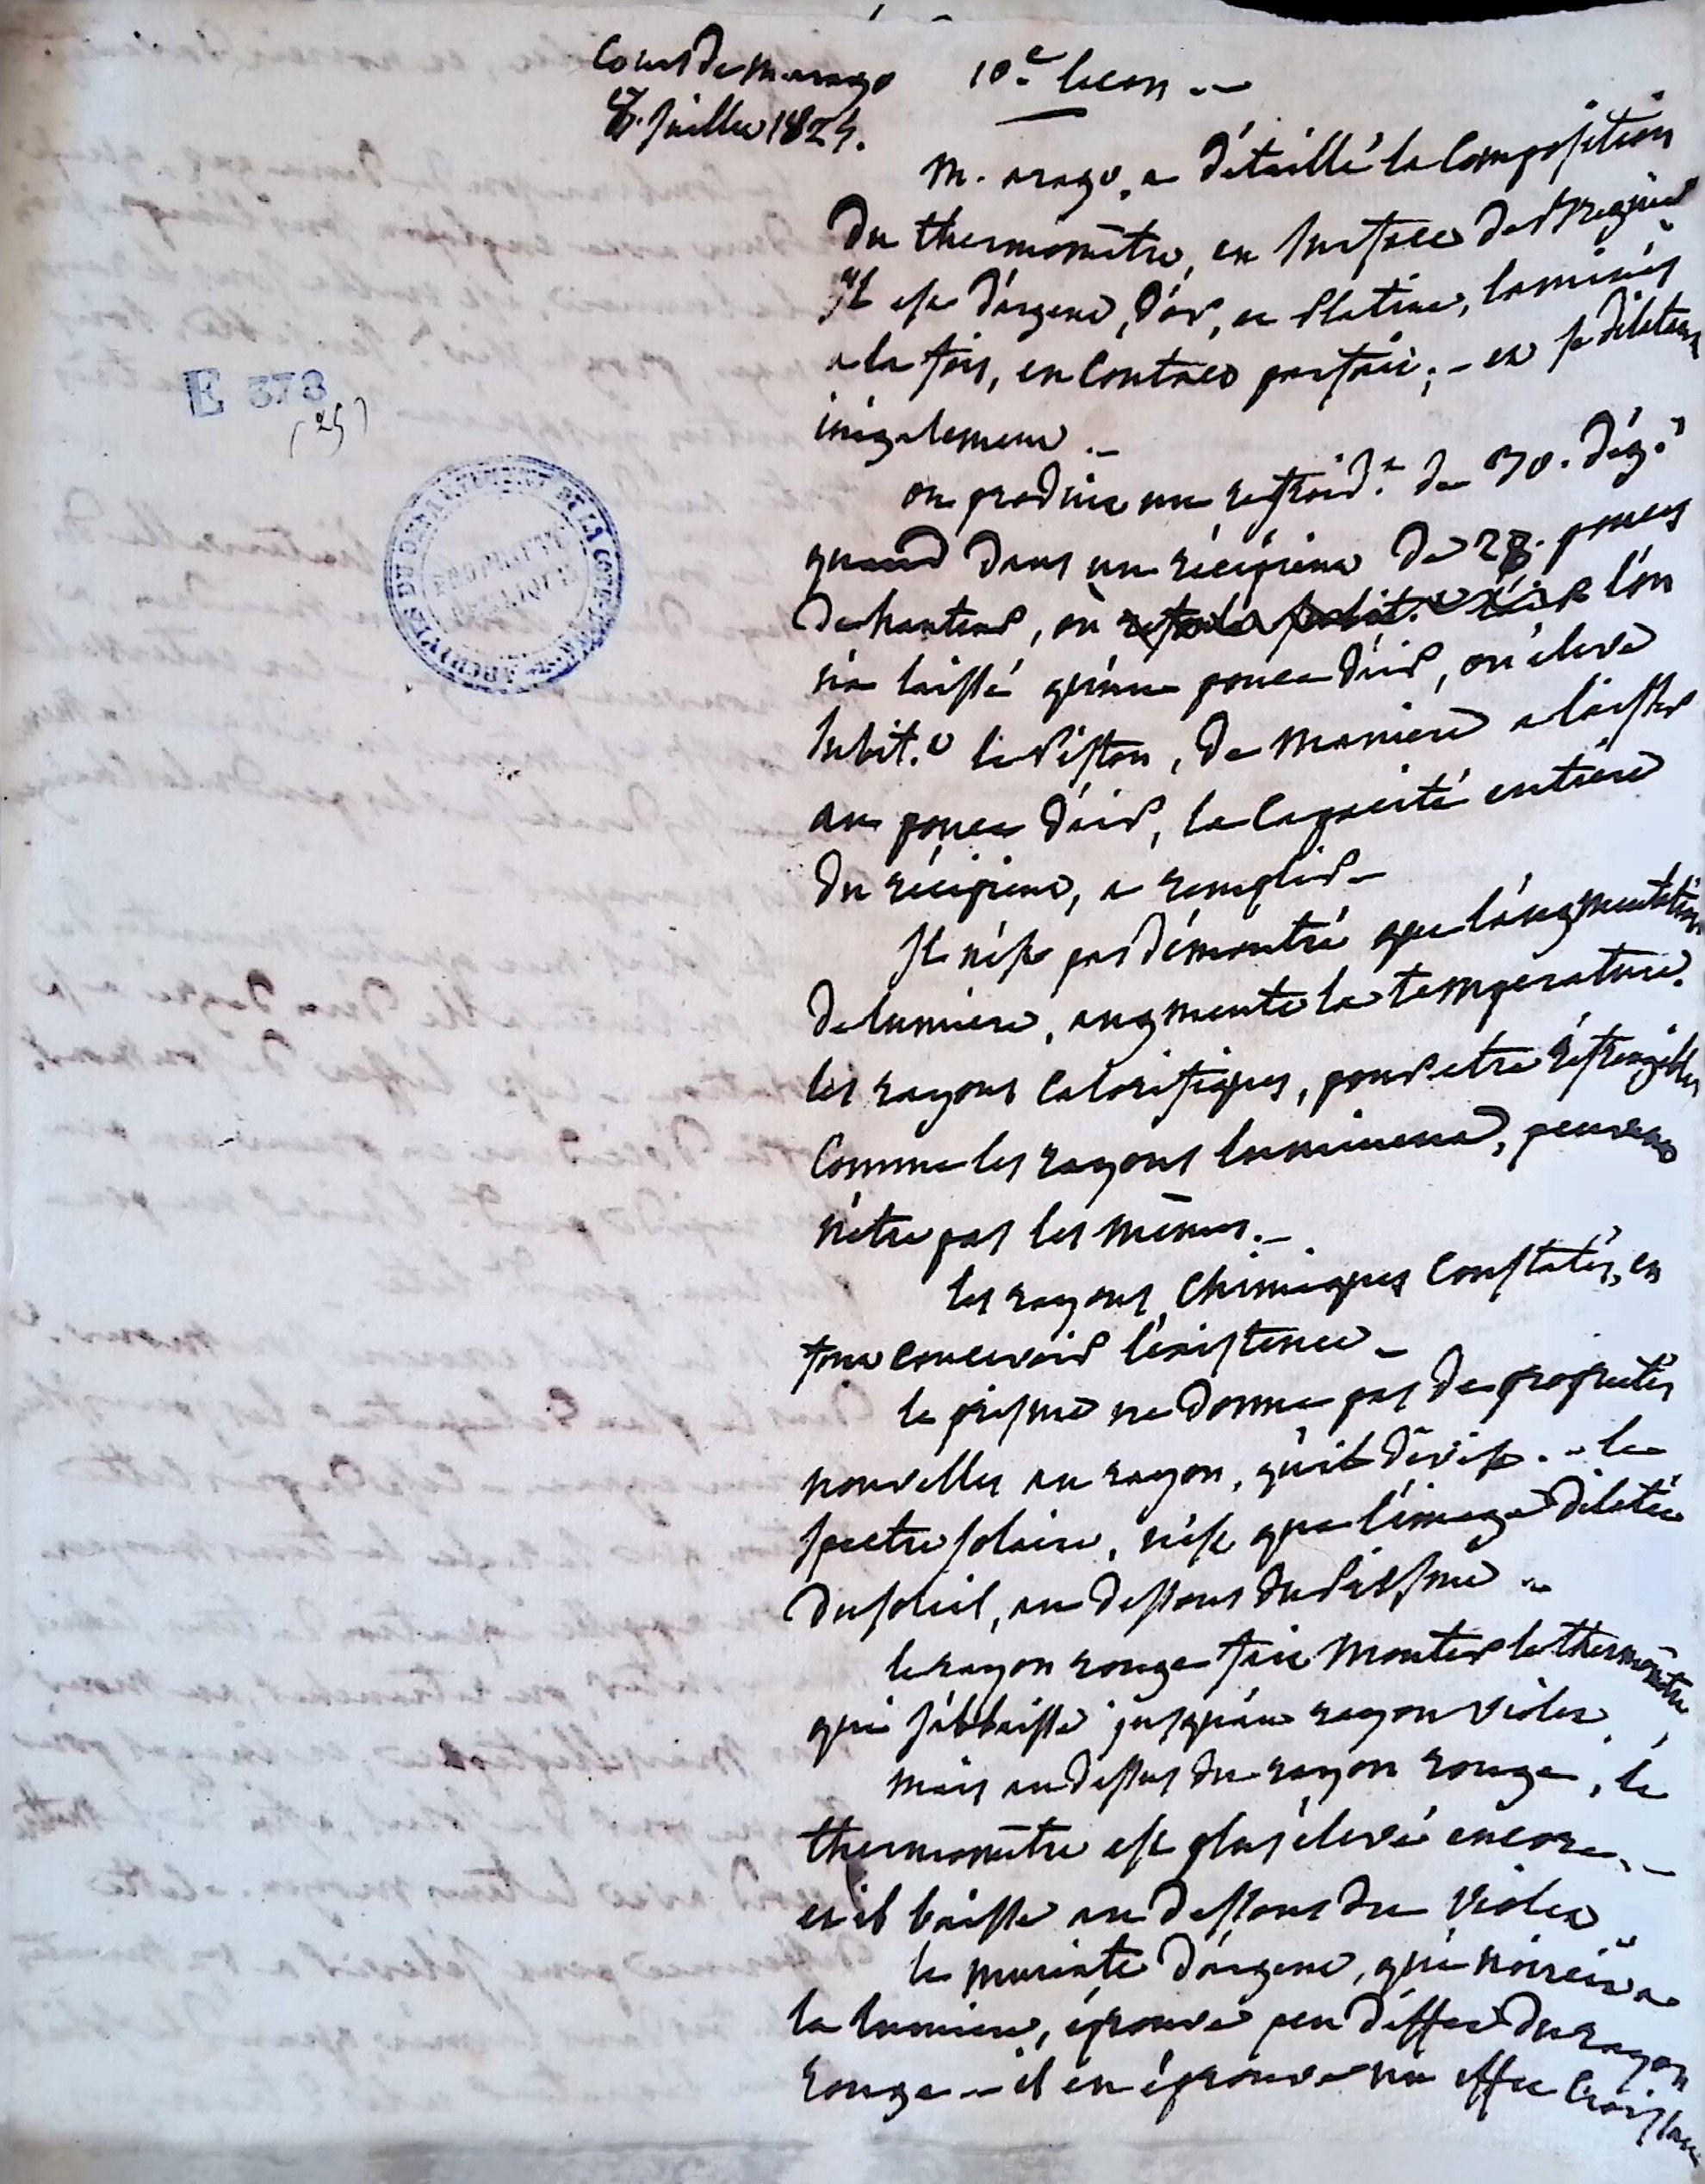 Cours de m. arago 10.e lecon. --
8. juillet 1824.
M. arago, a détaillé la composition
du thermomètre, en surface de breguet
il est d'argent, d'or, et platine, laminés
a la fois, en contact parfait; - et se dilatant
inégalement. -
on produit un refroid.t de 30. dég.s
quand dans un récipient de 28. pouces
de hauteur, où l'on
n'a laissé qu'un pouce d'air, on élève
subit.t le piston, de maniere a laisser
au pouce d'air, la capacité entiere
du récipient, a remplir -
Il n'est pas démontré que l'augmentation
de lumiere, augmente la température.
les rayons calorifiques, pour etre réfrangibles
comme les rayons lumineux, peuvent
n'etre pas les mêmes. -
les rayons chimiques constatés, en
font concevoir l'existence -
le prisme ne donne pas de propriétés
nouvelles au rayon, qu'il divise. - le
spectre solaire, n'est que l'image dilatée
du soleil, au dessous du prisme -
le rayon rouge fait monter le thermomètre
qui s'abbaisse jusqu'au rayon violet,
mais au dessus du rayon rouge, le
thermomètre est plus élevé encore. -
et il baisse au dessous du violet
le muriate d'argent, qui noircit a
la lumiere, éprouve peu d'effet du rayon
rouge - il en éprouve un effet croissant
E 378
(25)
ARCHIVES DU DEPARTEMENT DE LA COTE
PROPRIÉTÉ
PUBLIQUE